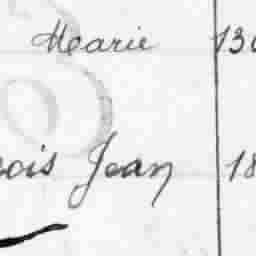 Marie 130
ois Jean 18